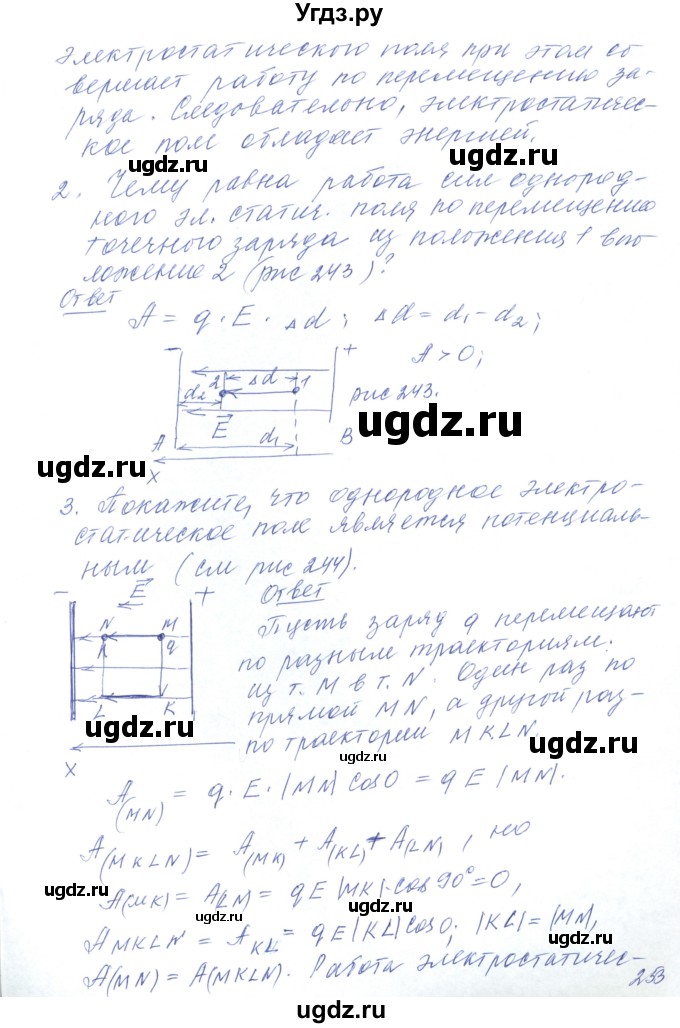 Угдз.ру
электростатического поля при этом со
вершает работу по перемещению за-
ряда. Следовательно, электростатичес-
кое поле обладает энергией.
ugdz.ru ugdz.ru
2. Чему равна работа сил однород-
ного эл. статич. поля по перемещению
точечного заряда из положения 1 в по
ложение 2 (рис 243)?
ugdz.ru
Ответ
A = q · E · Δd; Δd = d₁ - d₂;
A > 0;
- +
2 Δd 1
d₂
рис 243.
E
ugdz.ru
A d₁ B
ugdz.ru
X
3. Покажите, что однородное электро-
статическое поле является потенциаль-
ным (см рис 244).
ugdz.ru
Ответ
- E +
N M
q
L K
X
Пусть заряд q перемещают
по разным траекториям:
из т. M в т. N. Один раз по
прямой MN, а другой раз-
по траектории MKLN.
ugdz.ru ugdz.ru
A(MN) = q · E · |MN| cos 0 = q E |MN|.
A(MKLN) = A(MK) + A(KL) + A(LN), но
ugdz.ru ugdz.ru
A(MK) = A(LN) = qE|MK| · cos 90° = 0,
AMKLN = AKL = qE|KL| cos 0; |KL| = |MN|,
ugdz.ru ugdz.ru
A(MN) = A(MKLN). Работа электростатичес-
253
ugdz.ru